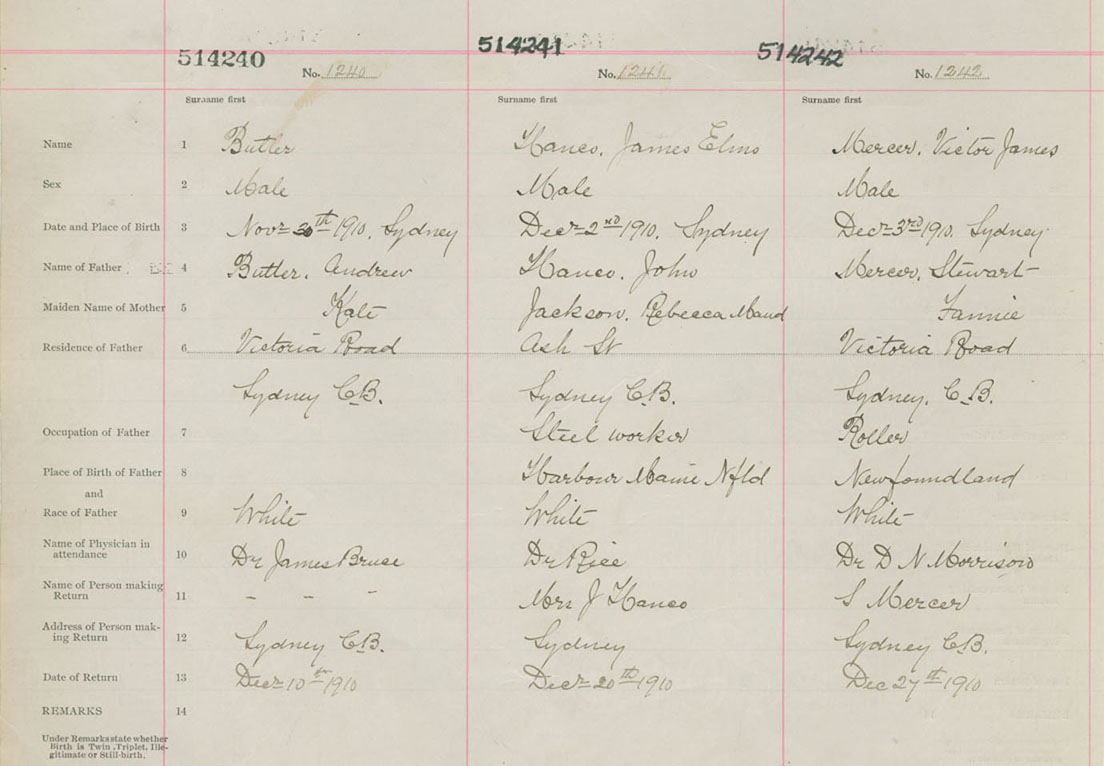 514240 514241 514242
No. 1240 No. 1241 No. 1242
Surname first Surname first Surname first
Name 1 Butler Hanco, James Elmo Mercer, Victor James
Sex 2 Male Male Male
Date and Place of Birth 3 Novr 30th 1910, Sydney Decr 2nd 1910, Sydney Decr 3rd 1910, Sydney
Name of Father 4 Butler, Andrew Hanco, John Mercer, Stewart
Maiden Name of Mother 5 Kate Jackson, Rebecca Maud Fannie
Residence of Father 6 Victoria Road Ash St Victoria Road
Sydney C.B. Sydney C.B. Sydney, C.B.
Occupation of Father 7 Steel worker Roller
Place of Birth of Father 8 Harbour Maine Nfld Newfoundland
and
Race of Father 9 White White White
Name of Physician in
attendance 10 Dr James Bruce Dr Rice Dr D N Morrison
Name of Person making
Return 11 - - - Mrs J Hanco S Mercer
Address of Person mak-
ing Return 12 Sydney C.B. Sydney Sydney C.B.
Date of Return 13 Decr 10th 1910 Decr 20th 1910 Dec 27th 1910
REMARKS 14
Under Remarks state whether
Birth is Twin, Triplet, Ille-
gitimate or Still-birth.